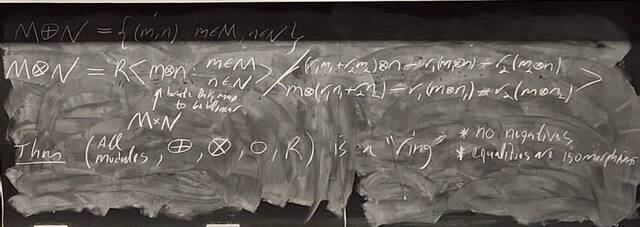 M⊕N = {(m,n) : m∈M, n∈N}
M⊗N = R< m⊗n : m∈M n∈N > / <(r₁m₁+r₂m₂)⊗n - r₁(m₁⊗n) - r₂(m₂⊗n)
m⊗(r₁n₁+r₂n₂) - r₁(m⊗n₁) - r₂(m⊗n₂)>
↑ this map to be bilinear
M×N
Thm (All modules, ⊕, ⊗, 0, R) is a "ring" * no negatives,
* equalities are isomorphisms